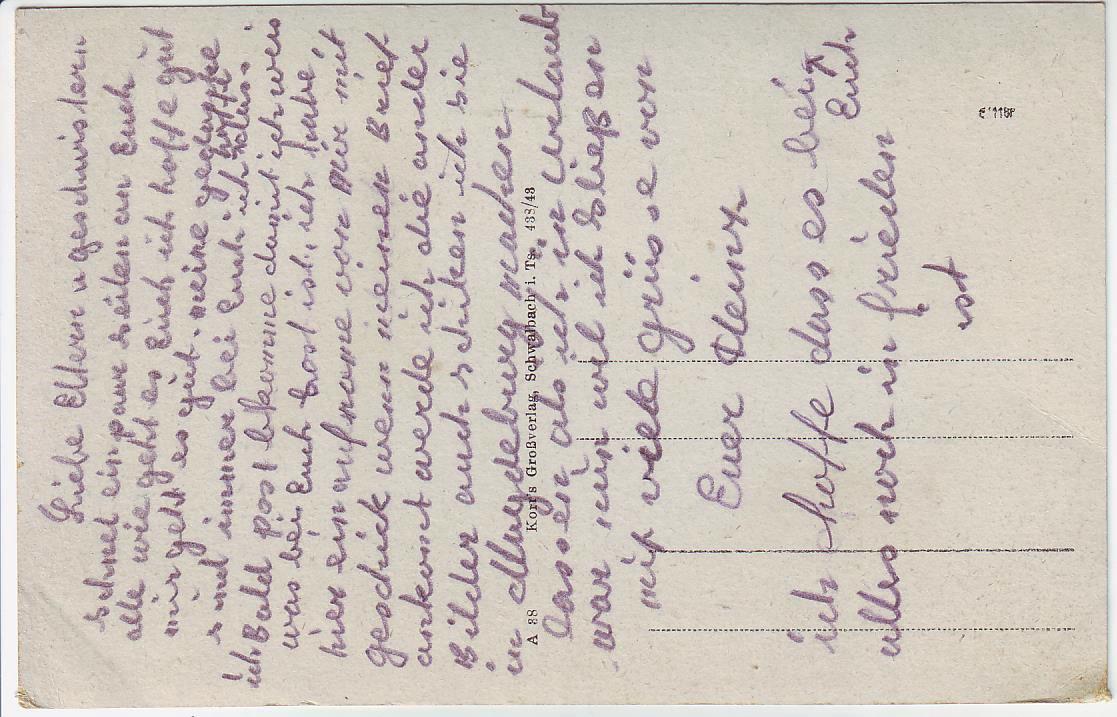 Liebe Eltern u geschwistern
schnel ein paar seilen an Euch
alle wie geht es Euch ich hoffe gut
mir geht es gut. meine
sind immer bei Euch ich hoffe das
ich Bald post bekomme damit ich weis
was bei Euch los ist. ich habe
hier ein aufname von mir mit
geschick wenn meinen Brief
ankomt werde ich die ander
Bilder auch schiken ich sie
in Magdeburg machen
lassen als ich in urlaub
war nun wil ich schließen
mit viele Grüsse von
Euer Heinz
ich hoffe dass es bei Euch
alles noch in frieden
ist
A 88 Korr's Großverlag, Schwalbach i. Ts. 438/43